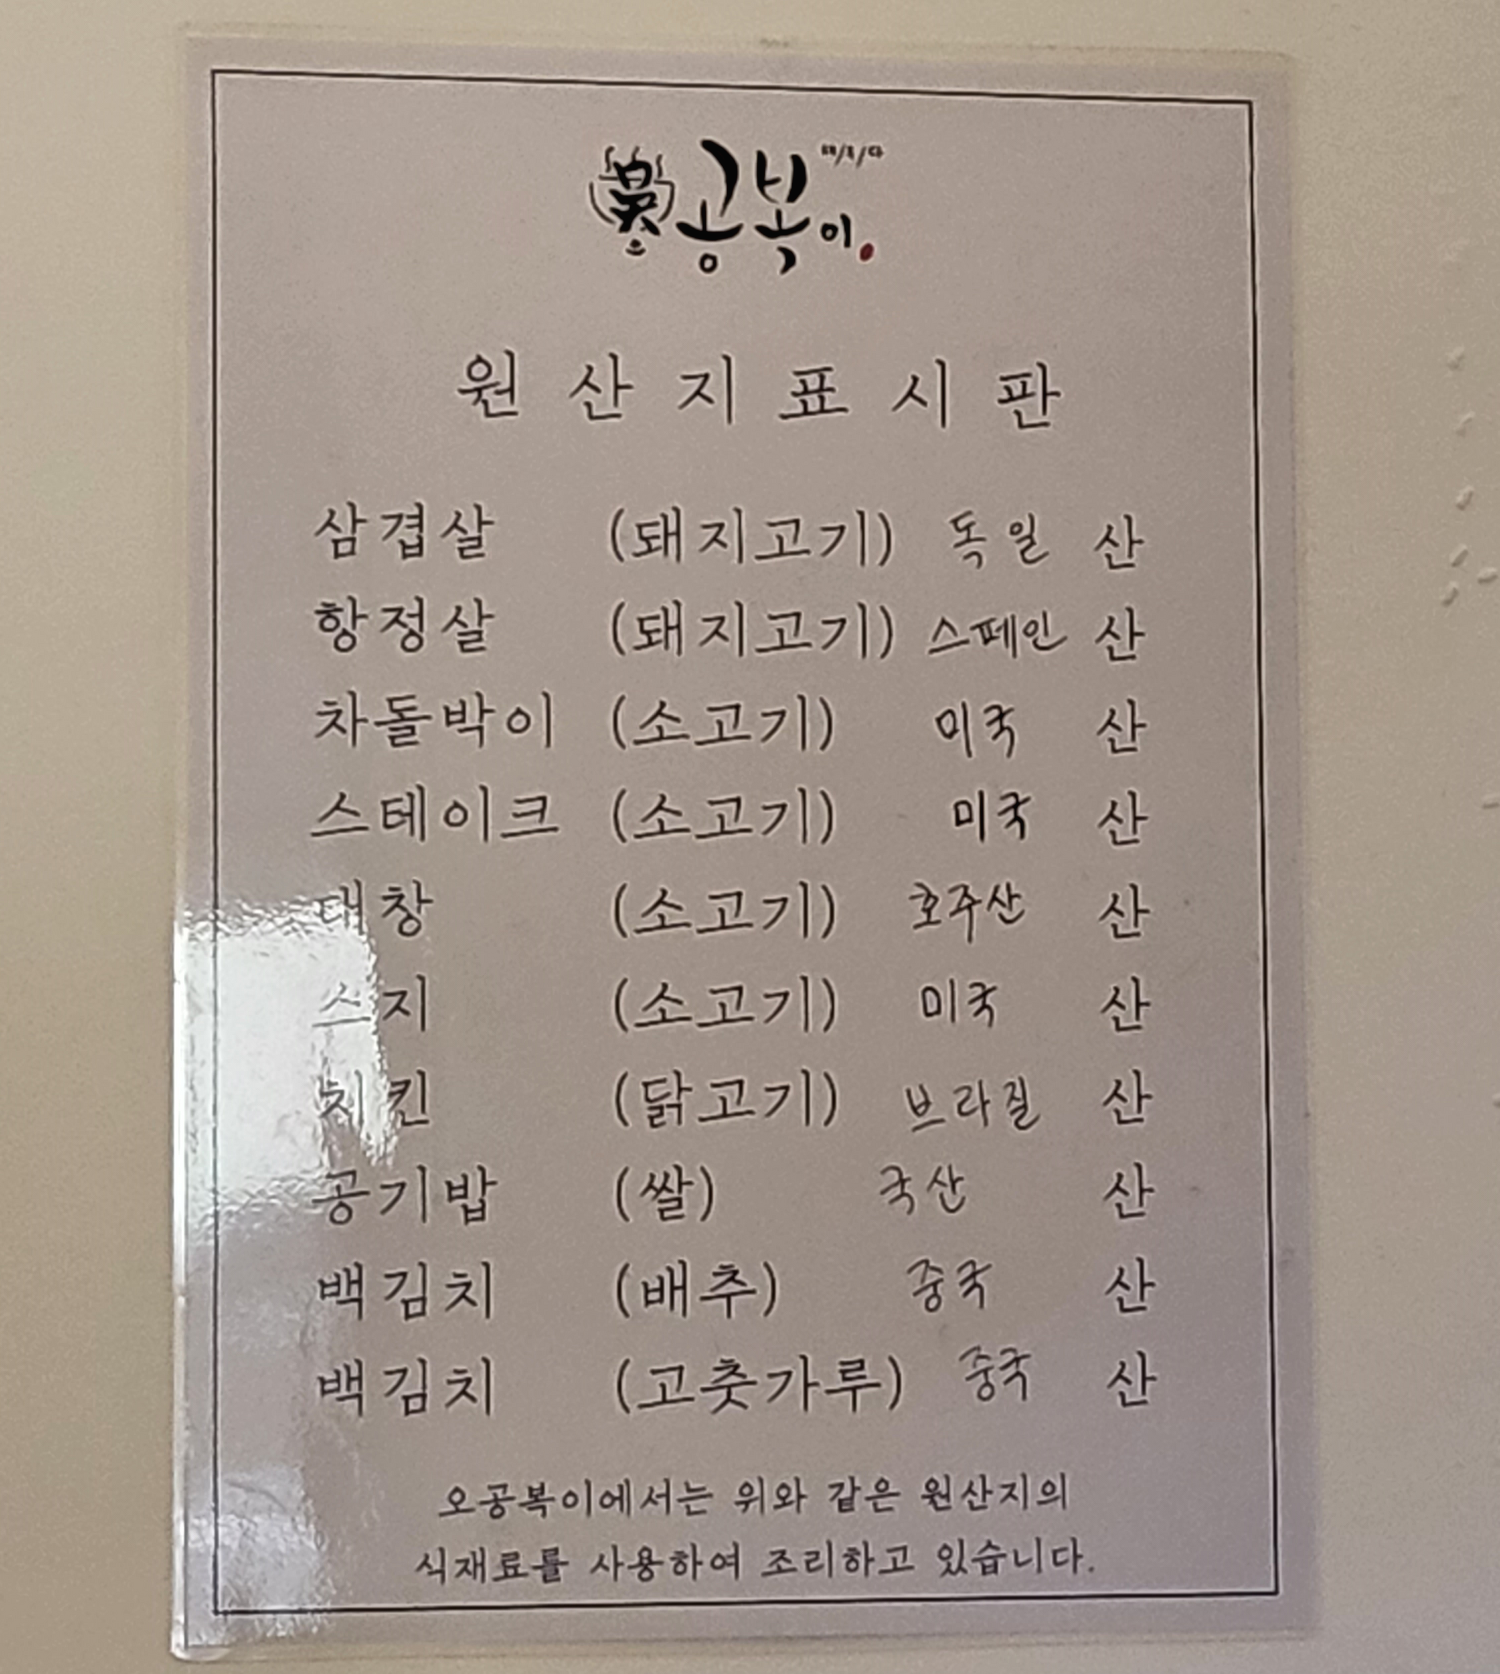 공복이.
원산지표시판
삼겹살 (돼지고기) 독일 산
항정살 (돼지고기) 스페인 산
차돌박이 (소고기) 미국 산
스테이크 (소고기) 미국 산
대창 (소고기) 호주산 산
스지 (소고기) 미국 산
치킨 (닭고기) 브라질 산
공기밥 (쌀) 국산 산
백김치 (배추) 중국 산
백김치 (고춧가루) 중국 산
오공복이에서는 위와 같은 원산지의
식재료를 사용하여 조리하고 있습니다.